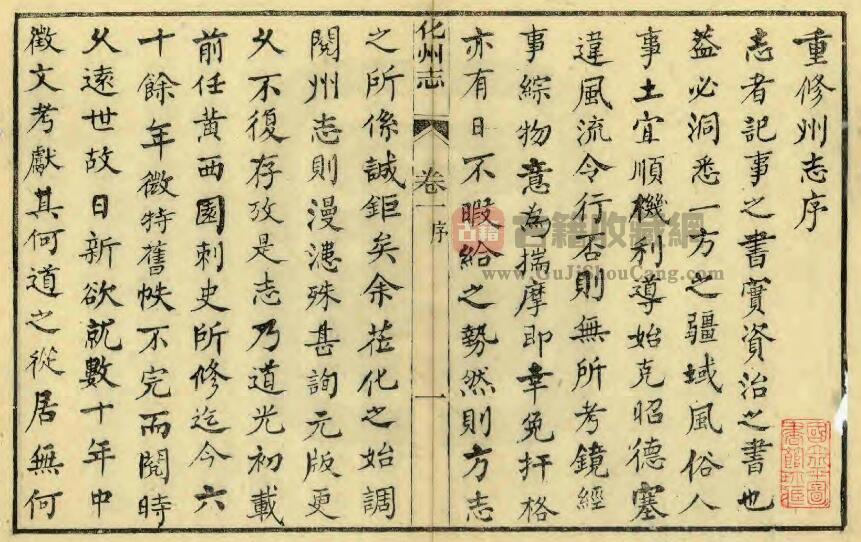 重修州志序
志者記事之書實資治之書也
葢必洞悉一方之疆域風俗人
事土宜順機利導始克昭德塞
違風流令行否則無所考鏡經
事綜物意為揣摩即幸免扞格
亦有日不暇給之勢然則方志
化州志
卷一序
一
之所係誠鉅矣余蒞化之始調
閱州志則漫漶殊甚詢元版更
乆不復存攷是志乃道光初載
前任黄西園刺史所修迄今六
十餘年微特舊帙不完而閱時
乆遠世故日新欲就數十年中
徵文考獻其何道之從居無何
古籍
古籍收藏網
www.GuJiShouCang.com